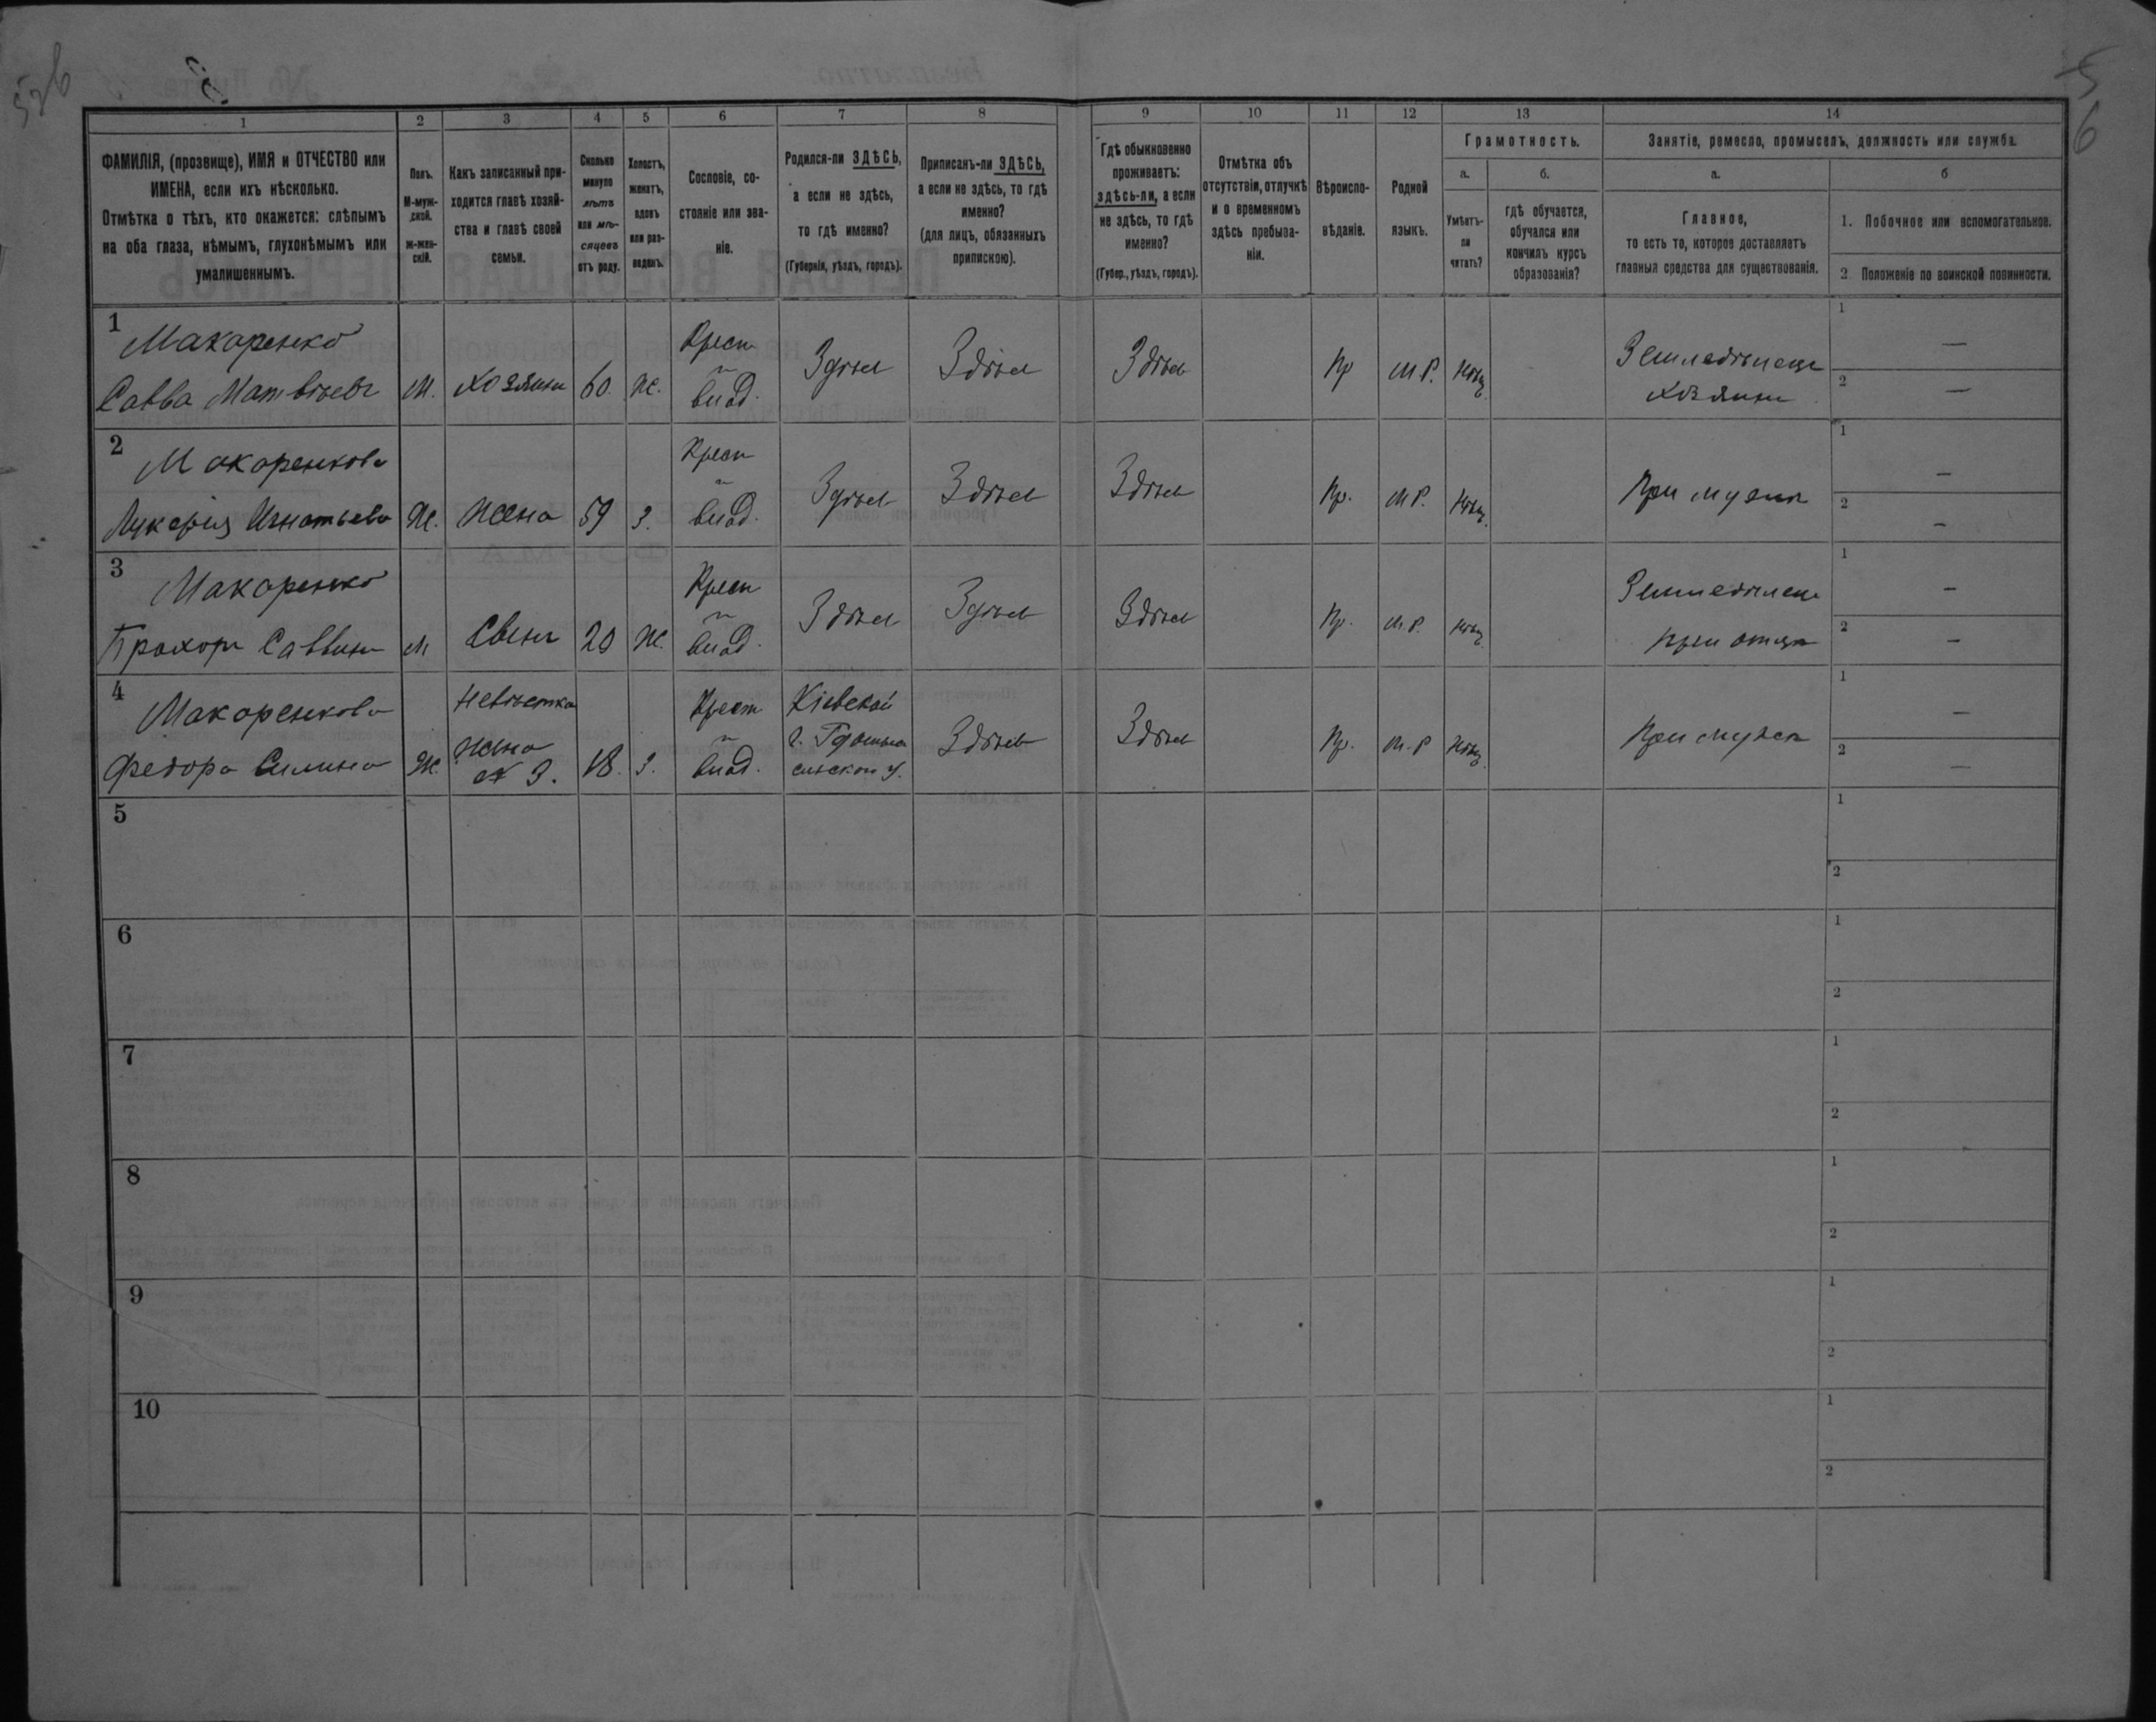 1 2 3 4 5 6 7 8 9 10 11 12 13 14
ФАМИЛІЯ, (прозвище), ИМЯ и ОТЧЕСТВО или
ИМЕНА, если ихъ нѣсколько.
Отмѣтка о тѣхъ, кто окажется: слѣпымъ
на оба глаза, нѣмымъ, глухонѣмымъ или
умалишеннымъ.
Полъ.
М-муж-
ской.
ж-жен-
скій.
Какъ записанный при-
ходится главѣ хозяй-
ства и главѣ своей
семьи.
Сколько
минуло
лѣтъ
или мѣ-
сяцевъ
отъ роду.
Холостъ,
женатъ,
вдовъ
или раз-
веденъ.
Сословіе, со-
стояніе или зва-
ніе.
Родился-ли ЗДѢСЬ,
а если не здѣсь,
то гдѣ именно?
(Губернія, уѣздъ, городъ).
Приписанъ-ли ЗДѢСЬ,
а если не здѣсь, то гдѣ
именно?
(для лицъ, обязанныхъ
припискою).
Гдѣ обыкновенно
проживаетъ:
здѣсь-ли, а если
не здѣсь, то гдѣ
именно?
(Губер., уѣздъ, городъ).
Отмѣтка объ
отсутствіи, отлучкѣ
и о временномъ
здѣсь пребыва-
ніи.
Вѣроиспо-
вѣданіе.
Родной
языкъ.
Грамотность.
а.
Умѣетъ-
ли
читать?
б.
гдѣ обучается,
обучался или
кончилъ курсъ
образованія?
Занятіе, ремесло, промыселъ, должность или служба.
а.
Главное,
то есть то, которое доставляетъ
главныя средства для существованія.
б
1. Побочное или вспомогательное.
2. Положеніе по воинской повинности.
1
Макаренко
Савва Матвѣевъ
М.
хозяинъ
60.
Ж.
Крест
влад.
Здѣсь
Здѣсь
Здѣсь
Пр
М.Р.
Нѣтъ
Земледѣлецъ
хозяинъ
1 —
2 —
2
Макаренкова
Лукерія Игнатьева
Ж.
жена
59
З.
Крест
влад.
Здѣсь
Здѣсь
Здѣсь
Пр.
М.Р.
Нѣтъ
При мужѣ
1 —
2 —
3
Макаренко
Прохоръ Саввинъ
М
Сынъ
20
Ж.
Крест
влад.
Здѣсь
Здѣсь
Здѣсь
Пр.
М.Р.
Нѣтъ
Земледѣлецъ
при отцѣ
1 —
2 —
4
Макаренкова
Федора Силина
Ж.
Невѣстка
жена
№ 3.
18.
З.
Крест
влад.
Кіевской
г.
У.
Здѣсь
Здѣсь
Пр.
М.Р
Нѣтъ
При мужѣ
1 —
2 —
5
1
2
6
1
2
7
1
2
8
1
2
9
1
2
10
1
2